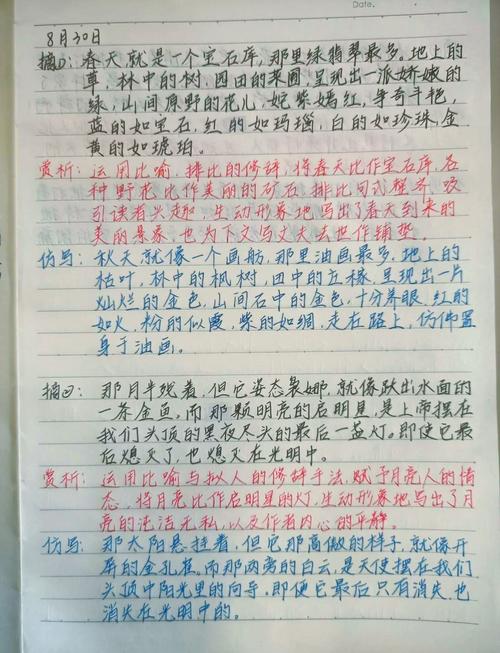 Date.
8月30日
摘①: 春天就是一个宝石库,那里绿翡翠最多。地上的
草,林中的树,园田的菜圃,呈现出一派娇嫩的
绿;山间原野的花儿,姹紫嫣红,争奇斗艳,
蓝的如宝石,红的如玛瑙,白的如珍珠,金
黄的如琥珀。
赏析: 运用比喻、排比的修辞,将春天比作宝石库,各
种野花比作美丽的矿石,排比句式整齐,吸
引读者兴趣,生动形象地写出了春天到来的
美丽景象,也为下文写丈夫去世作铺垫。
仿写: 秋天就像一个画舫,那里油画最多,地上的
枯叶,林中的枫树,田中的庄稼,呈现出一片
灿烂的金色,山间石中的金色,十分养眼,红的
如火,粉的似霞,紫的如绸,走在路上,仿佛置
身于油画。
摘②: 那月半残着,但它姿态袅娜,就像跃出水面的
一条金鱼。而那颗明亮的启明星,是上帝摆在
我们头顶的黑夜尽头的最后一盏灯。即使它最
后熄灭了,也熄灭在光明中。
赏析: 运用比喻与拟人的修辞手法,赋予月亮人的情
态,将月亮比作启明星的灯,生动形象地写出了月
亮的洁无私,以及作者内心的平静。
仿写: 那太阳悬挂着,但它那高傲的样子,就像开
屏的金孔雀。而那两旁的白云,是天使摆在我们
头顶中阳光里的向导。即便它最后只有消失,也
消失在光明中的。